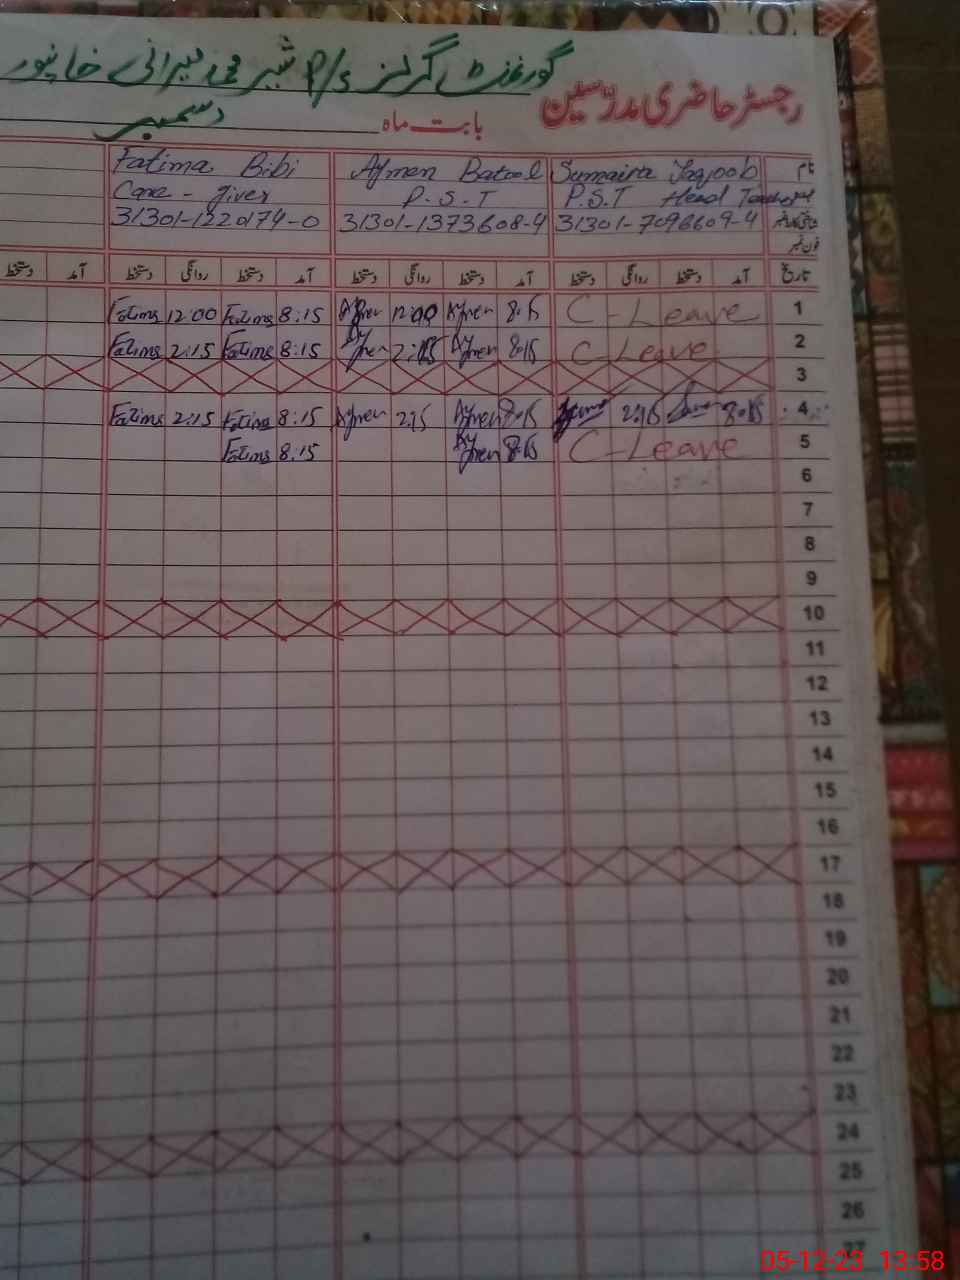 گورنمنٹ گرلز P/S شیر محمد میرانی خانپور
رجسٹر حاضری مدرسین
بابت ماہ دسمبر
نام Sumaira Yaqoob Aymen Batool Fatima Bibi
P.S.T Head Teacher P.S.T Care-giver
31301-7096609-4 31301-1373608-4 31301-1220174-0
فون نمبر
تاریخ آمد دستخط روانگی دستخط آمد دستخط روانگی دستخط آمد دستخط روانگی دستخط آمد دستخط
1 C-Leave 8:15 Aymen 12:00 Aymen 8:15 Fatima 12:00 Fatima
2 C-Leave 8:15 Aymen 2:15 Aymen 8:15 Fatima 2:15 Fatima
3
4 8:15 2:15 8:15 Aymen 2:15 Aymen 8:15 Fatima 2:15 Fatima
5 C-Leave 8:15 Aymen 8:15 Fatima
6
7
8
9
10
11
12
13
14
15
16
17
18
19
20
21
22
23
24
25
26
27
05-12-23 13:58